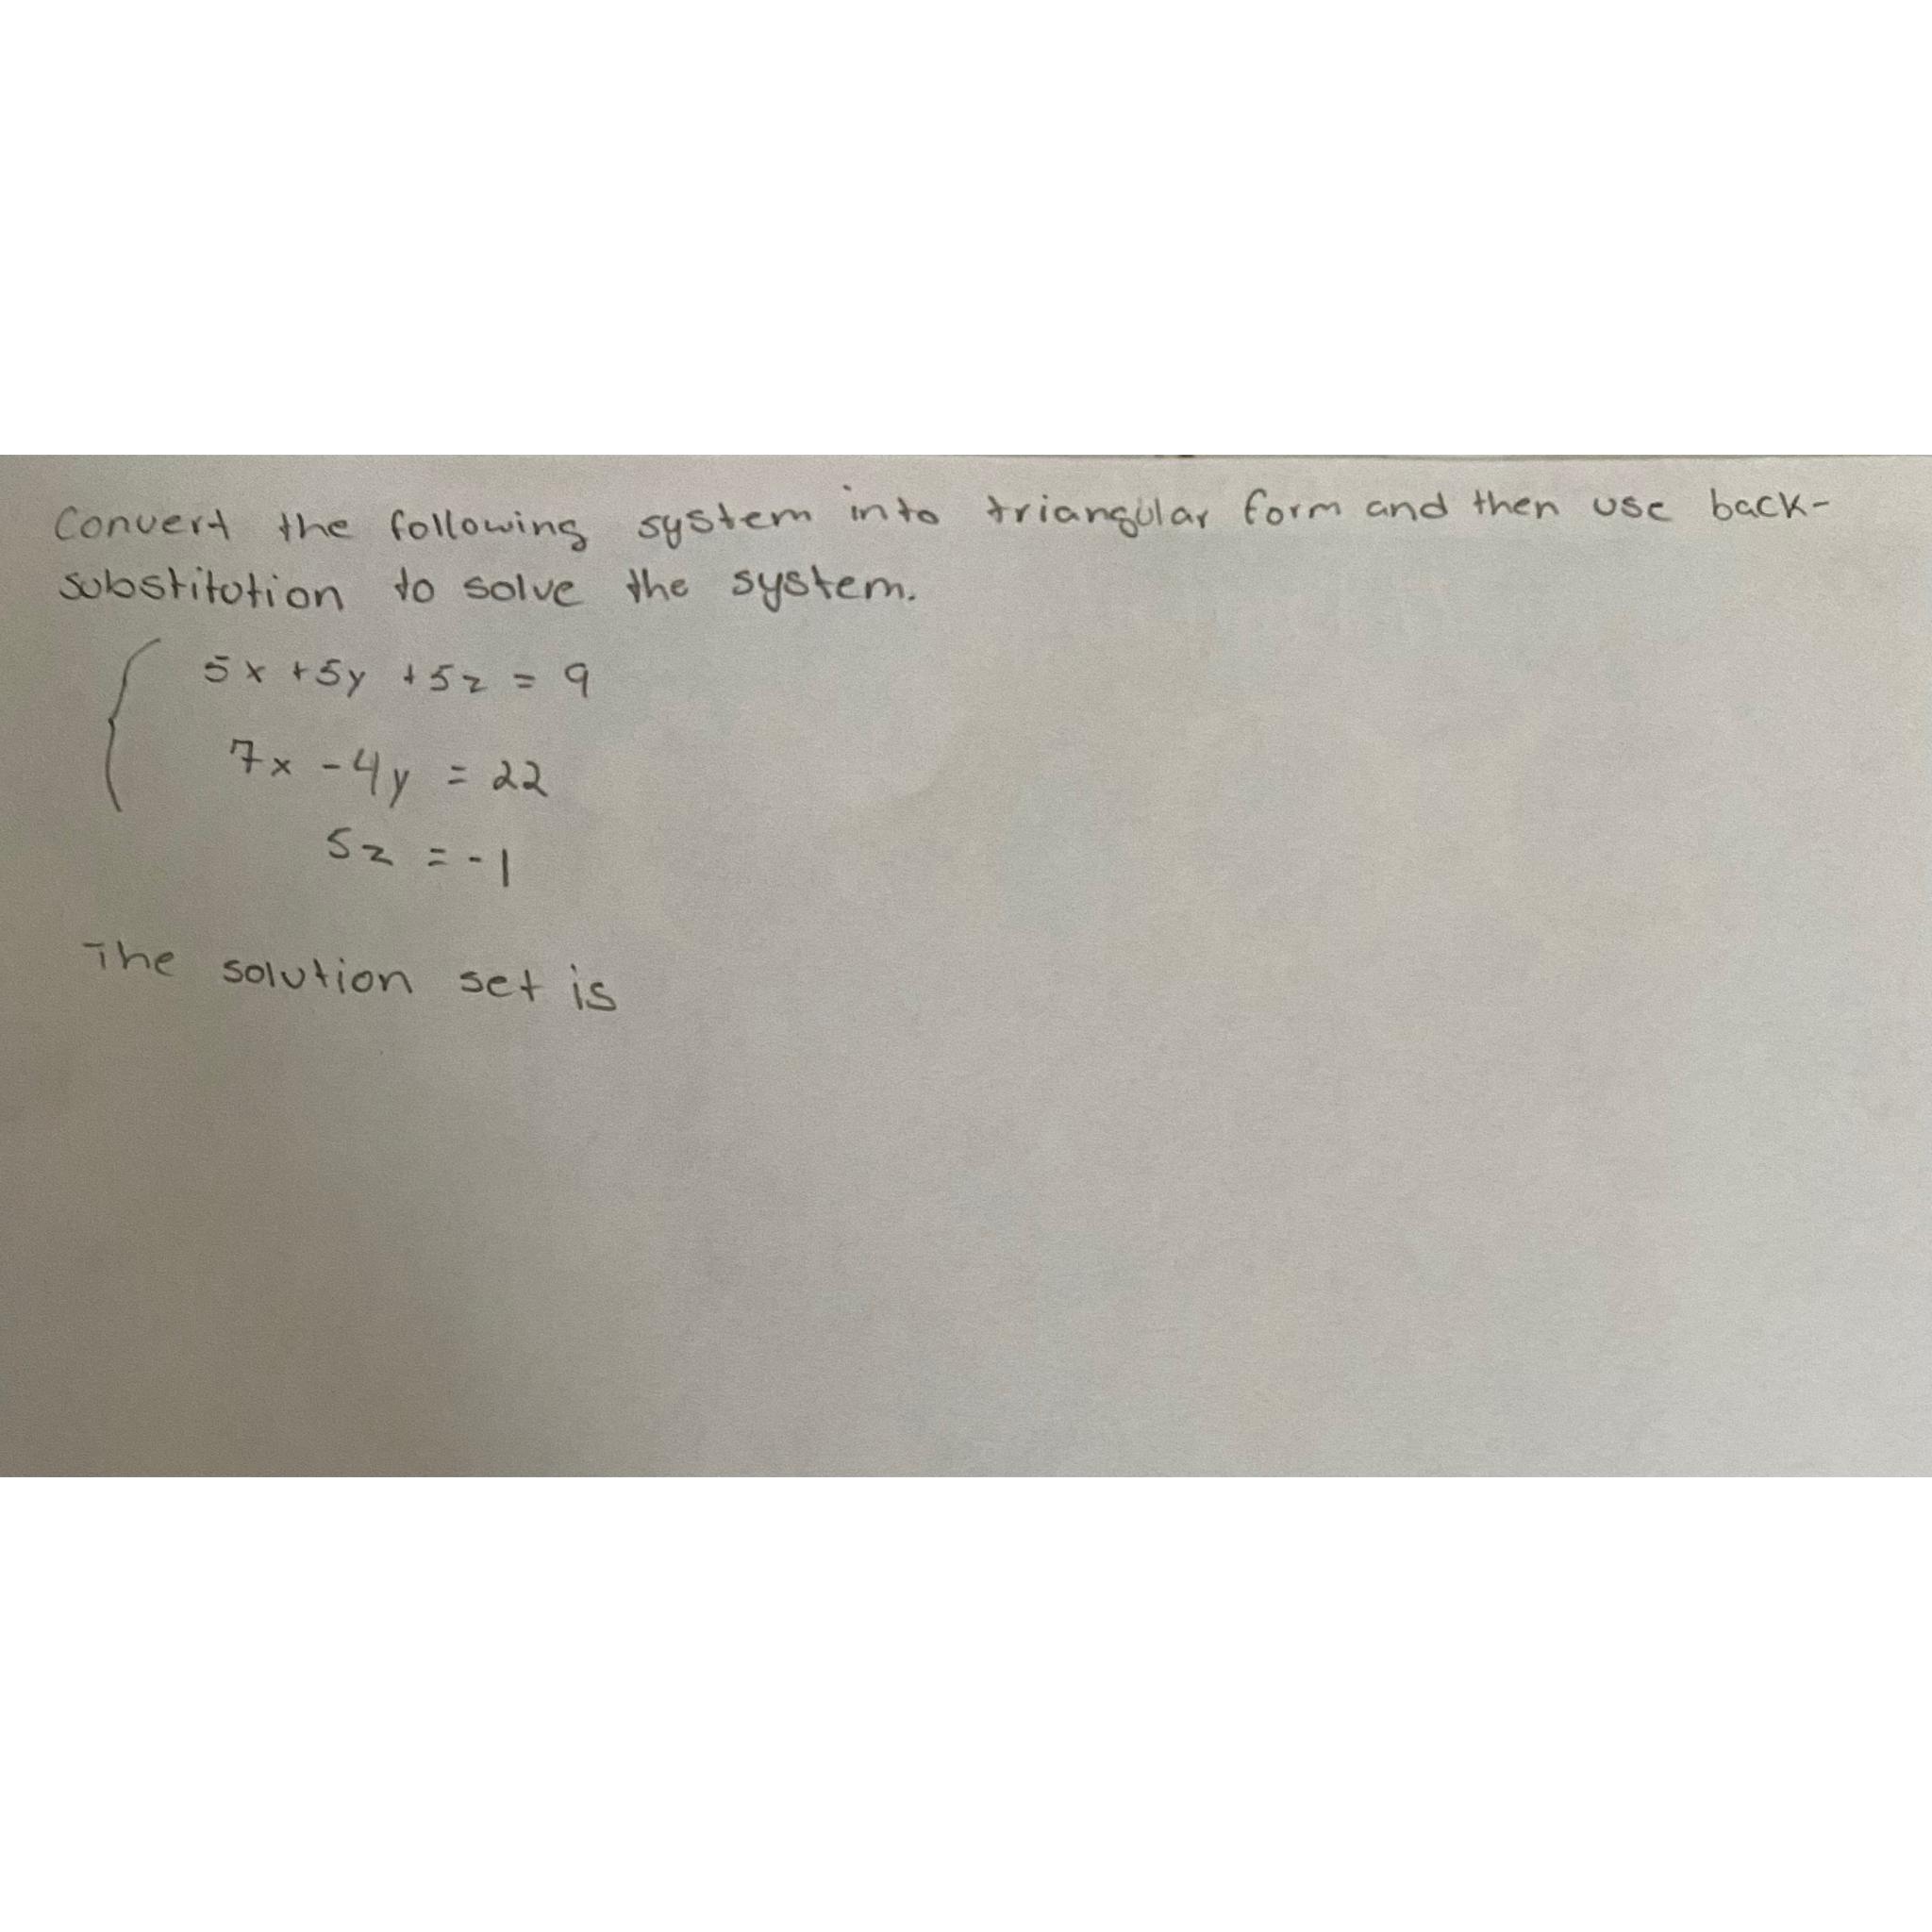 Convert the following system into triangular form and then use back-
substitution to solve the system.
5x +5y +5z = 9
7x -4y = 22
5z = -1
The solution set is